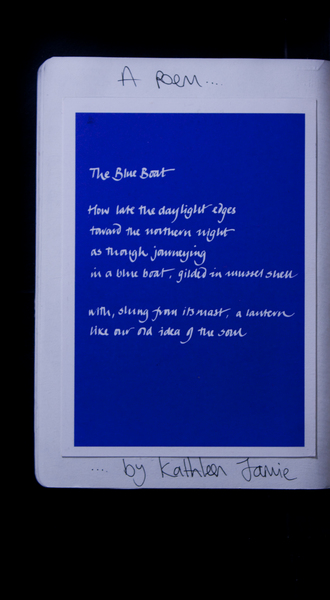 A poem...
The Blue Boat
How late the daylight edges
toward the northern night
as though journeying
in a blue boat, gilded in mussel shell
with, slung from its mast, a lantern
like our old idea of the soul
.... by Kathleen Jamie